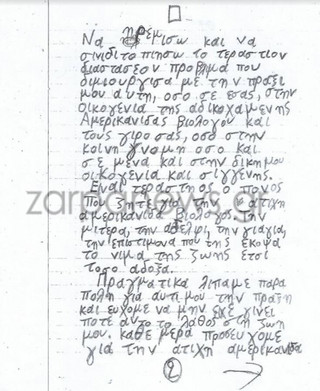 Να ηρεμισω και να
σινιδιτοπιησω το τεραστιον
διαστασεον προβλμα που
διμιουργισα με την πραξι
μου αυτη, οσο σε εσας, στην
οικογενια της αδικοχαμενης
Αμερικανιδας βιολογου και
τους γιρο σας, οσο στην
κοινη γνομη οσο και
σε μενα και στην δικημου
οικογενια και σιγγενης.
Εναι τεραστηος ο πονος
που ζητε για την ατιχη
αμερικανιδα βιολογος. Την
μιτερα, την αδελφι, την γιαγια,
την επιστιμονα που της εκοψα
το νιμα της ζωης ετσι
τοσο αδοξα.
Πραγματικα λιπαμε παρα
πολη για αυτι μου την πραξη
και ευχομε να μην ειχε γινει
ποτε αυτο το λαθος στη ζωη
μου. καθε μερα προσευχομε
για την ατιχη αμερικανιδα
2
zarpanews.gr